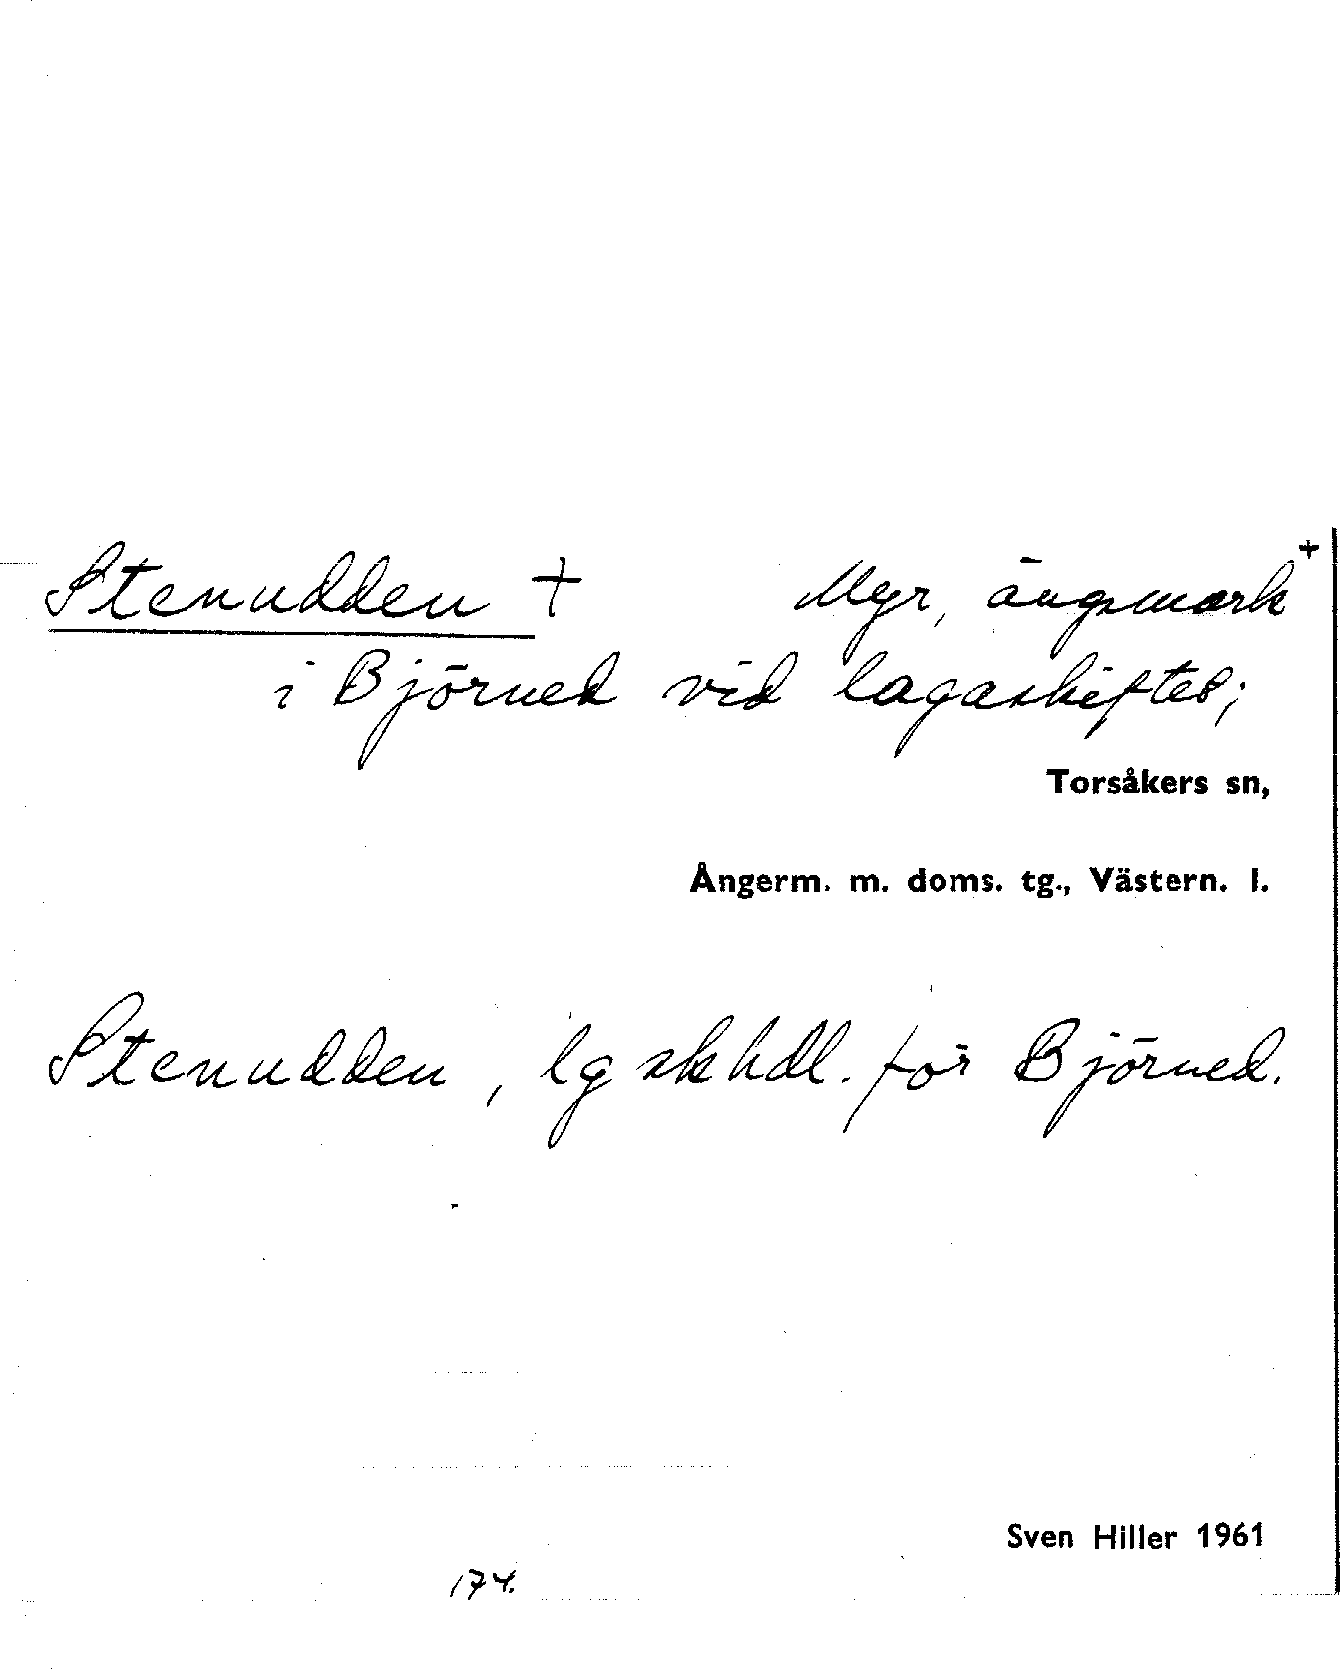 Stenudden + Myr, ängsmark+
i Björned vid lagaskiftet;
Torsåkers sn,
Ångerm. m. doms. tg., Västern. l.
Stenudden, lg sk hdl. för Björned.
Sven Hiller 1961
174.